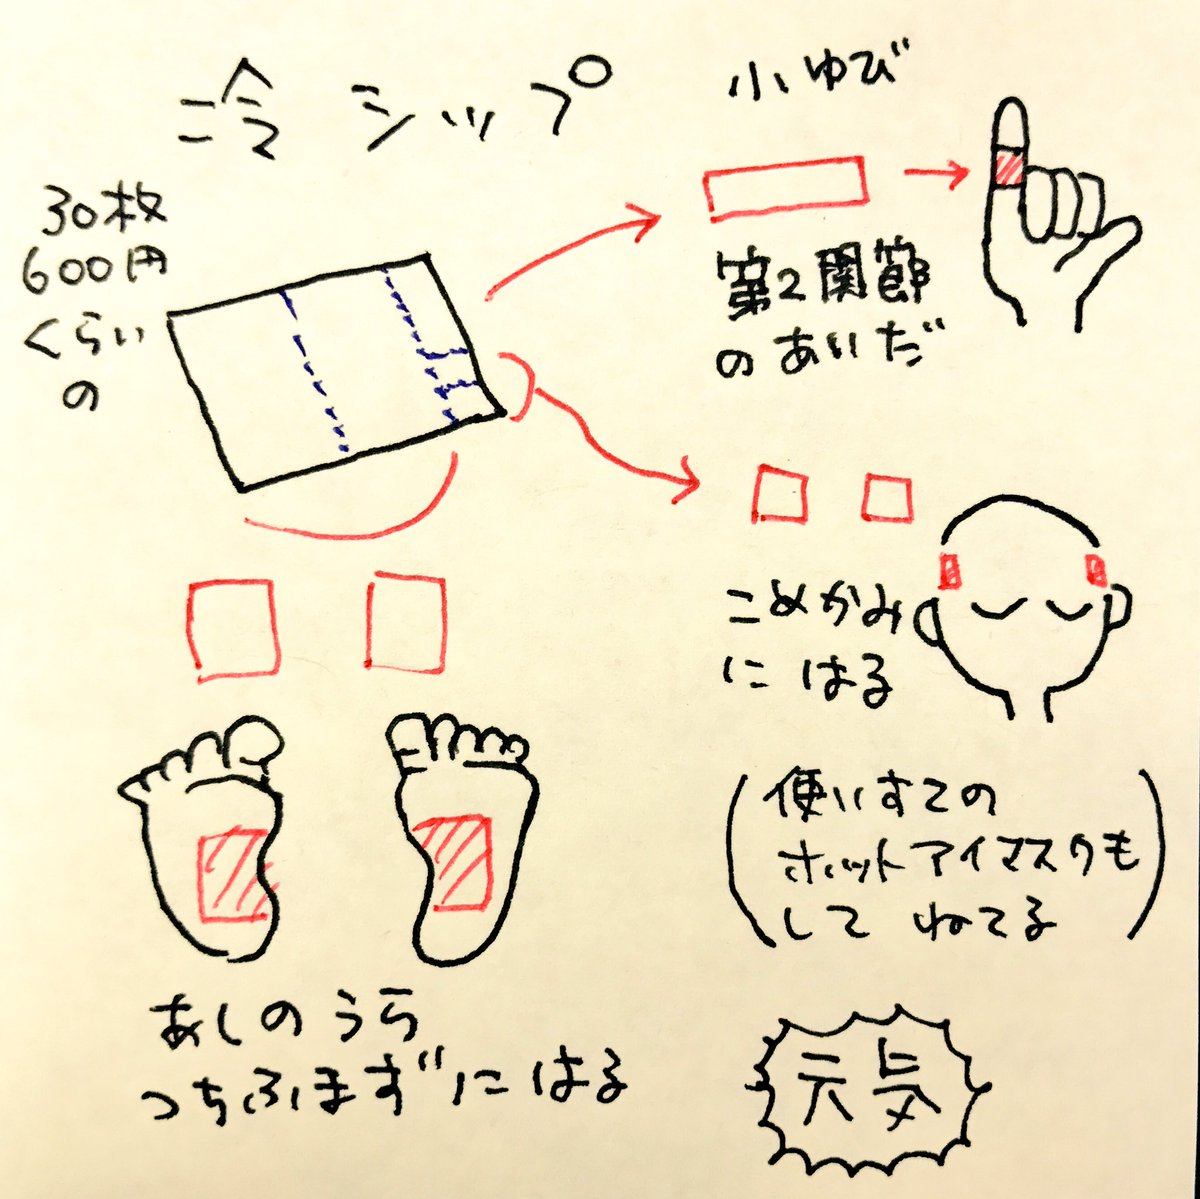 冷シップ
30枚
600円
くらい
の
小ゆび
第2関節
のあいだ
こめかみ
にはる
(使いすての
ホットアイマスクも
して ねてる)
あしのうら
つちふまずにはる
元気